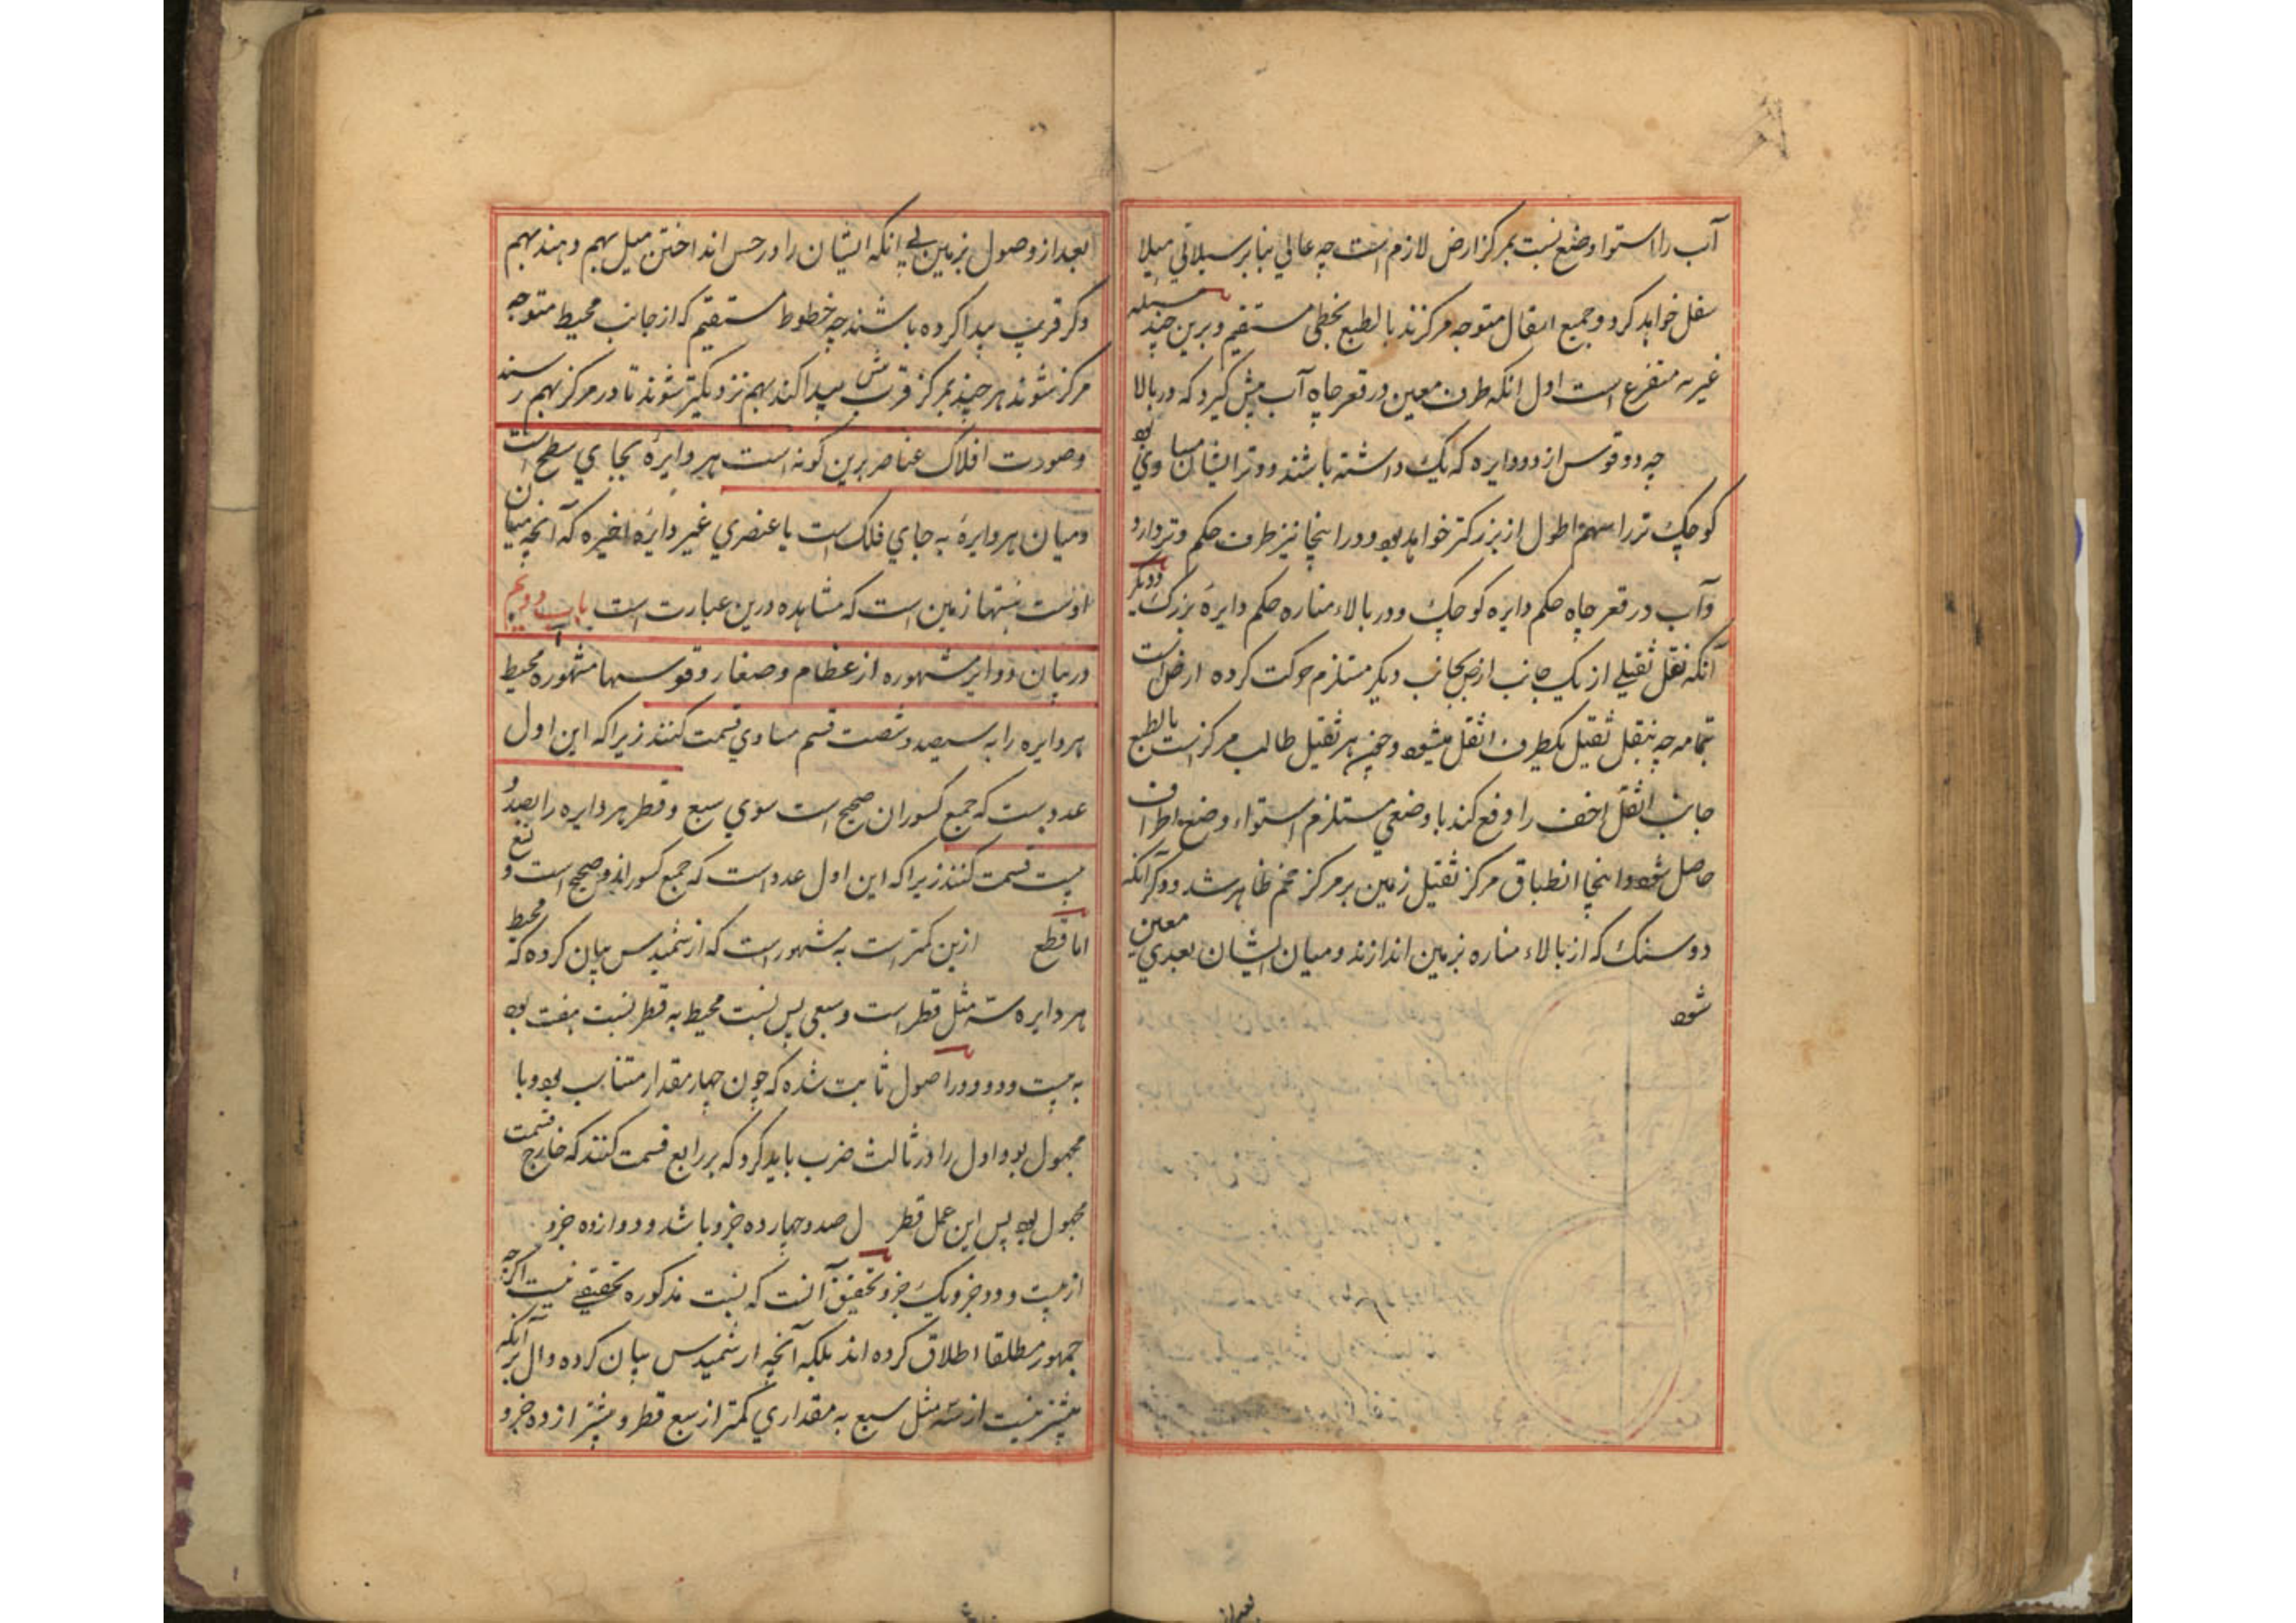 آب را استوا وضع نسبت بمرکز ارض لازم است چه عالی بنا بر سیلانی میلا
سفل خواهد کرد و جمیع اثقال متوجه مرکزند بالطبع بخطی مستقیم و برین چند مسئله
غیر به متفرع است اول انکه ظرف معین در قعر چاه آب بیش گیرد که در بالا
چه دو قوس از دو دایره که یک داشته باشند و وتر ایشان مساوی بود
کوچک تر را سهم اطول از بزرکتر خواهد بود و در اینجا نیز ظرف حکم وتر دارد
و آب در قعر چاه حکم دایره کوچک و در بالاء مناره حکم دایرهٔ بزرک و دیکر
آنکه نقل ثقیلی از یک جانب ارض بجانب دیکر مستلزم حرکت کرده ارض است
بتمامه چه بنقل ثقیل یکطرف اثقل میشود و چون هر ثقیل طالب مرکز است بالطبع
جانب اثقل اخف را دفع کند با وضعی مستلزم استواء وضع اطراف
حاصل شود و اینجا انطباق مرکز ثقیل زمین بر مرکز حجم ظاهر شد و دیکر آنکه
دو سنک که از بالاء مناره بزمین اندازند و میان ایشان بعدی معین
شود
بعد از
بعد از وصول بزمین بی انکه ایشان را در حس انداختن میل بهم دهند بهم
دکر قریب پیدا کرده باشند چه خطوط مستقیم که از جانب محیط متوجه
مرکز شوند هر چند بمرکز قرب بیش پیدا کند بهم نزدیکتر شوند تا در مرکز بهم رسند
و صورت افلاک عناصر برین کونه است هر دایرهٔ بجای سطح است
و میان هر دایرهٔ به جای فلک است یا عنصری غیر دایرهٔ اخیره که آنچه میان
اوست بتنها زمین است که مشاهده درین عبارت است باب دویم
در بیان دوایر مشهوره از عظام و صغار و قوسها مشهوره محیط
هر دایره را به سیصد و شصت قسم مساوی قسمت کنند زیرا که این اول
عددیست که جمیع کسور ان صحیح است سوی سبع و قطر هر دایره را بصد و
بیست قسمت کنند زیرا که این اول عدد است که جمیع کسور اند و صحیح است و
اما قطع ازین کمتر است به مشهور است که ارشمیدس بیان کرده که محیط
هر دایره سه مثل قطر است و سبعی پس نسبت محیط به قطر نسبت هفت بود
به بیست و دو و در اصول ثابت شده که چون چهار مقدار متناسب بود و با
مجهول بود اول را در ثالث ضرب باید کرد که بر رابع قسمت کنند که خارج قسمت
مجهول بود پس این عمل قطر ل صد و چهارده جزو باشد و دوازده جزو
از بیست و دو جزو یک جزو تحقیق آنست که نسبت مذکوره تحقیقی نیست اکرچه
جمهور مطلقا اطلاق کرده اند بلکه آنچه ارشمیدس بیان کرده دال بر آنکه
بیشتر نیست از سه مثل سبع به مقداری کمتر از سبع قطر و بیشتر از ده جزو